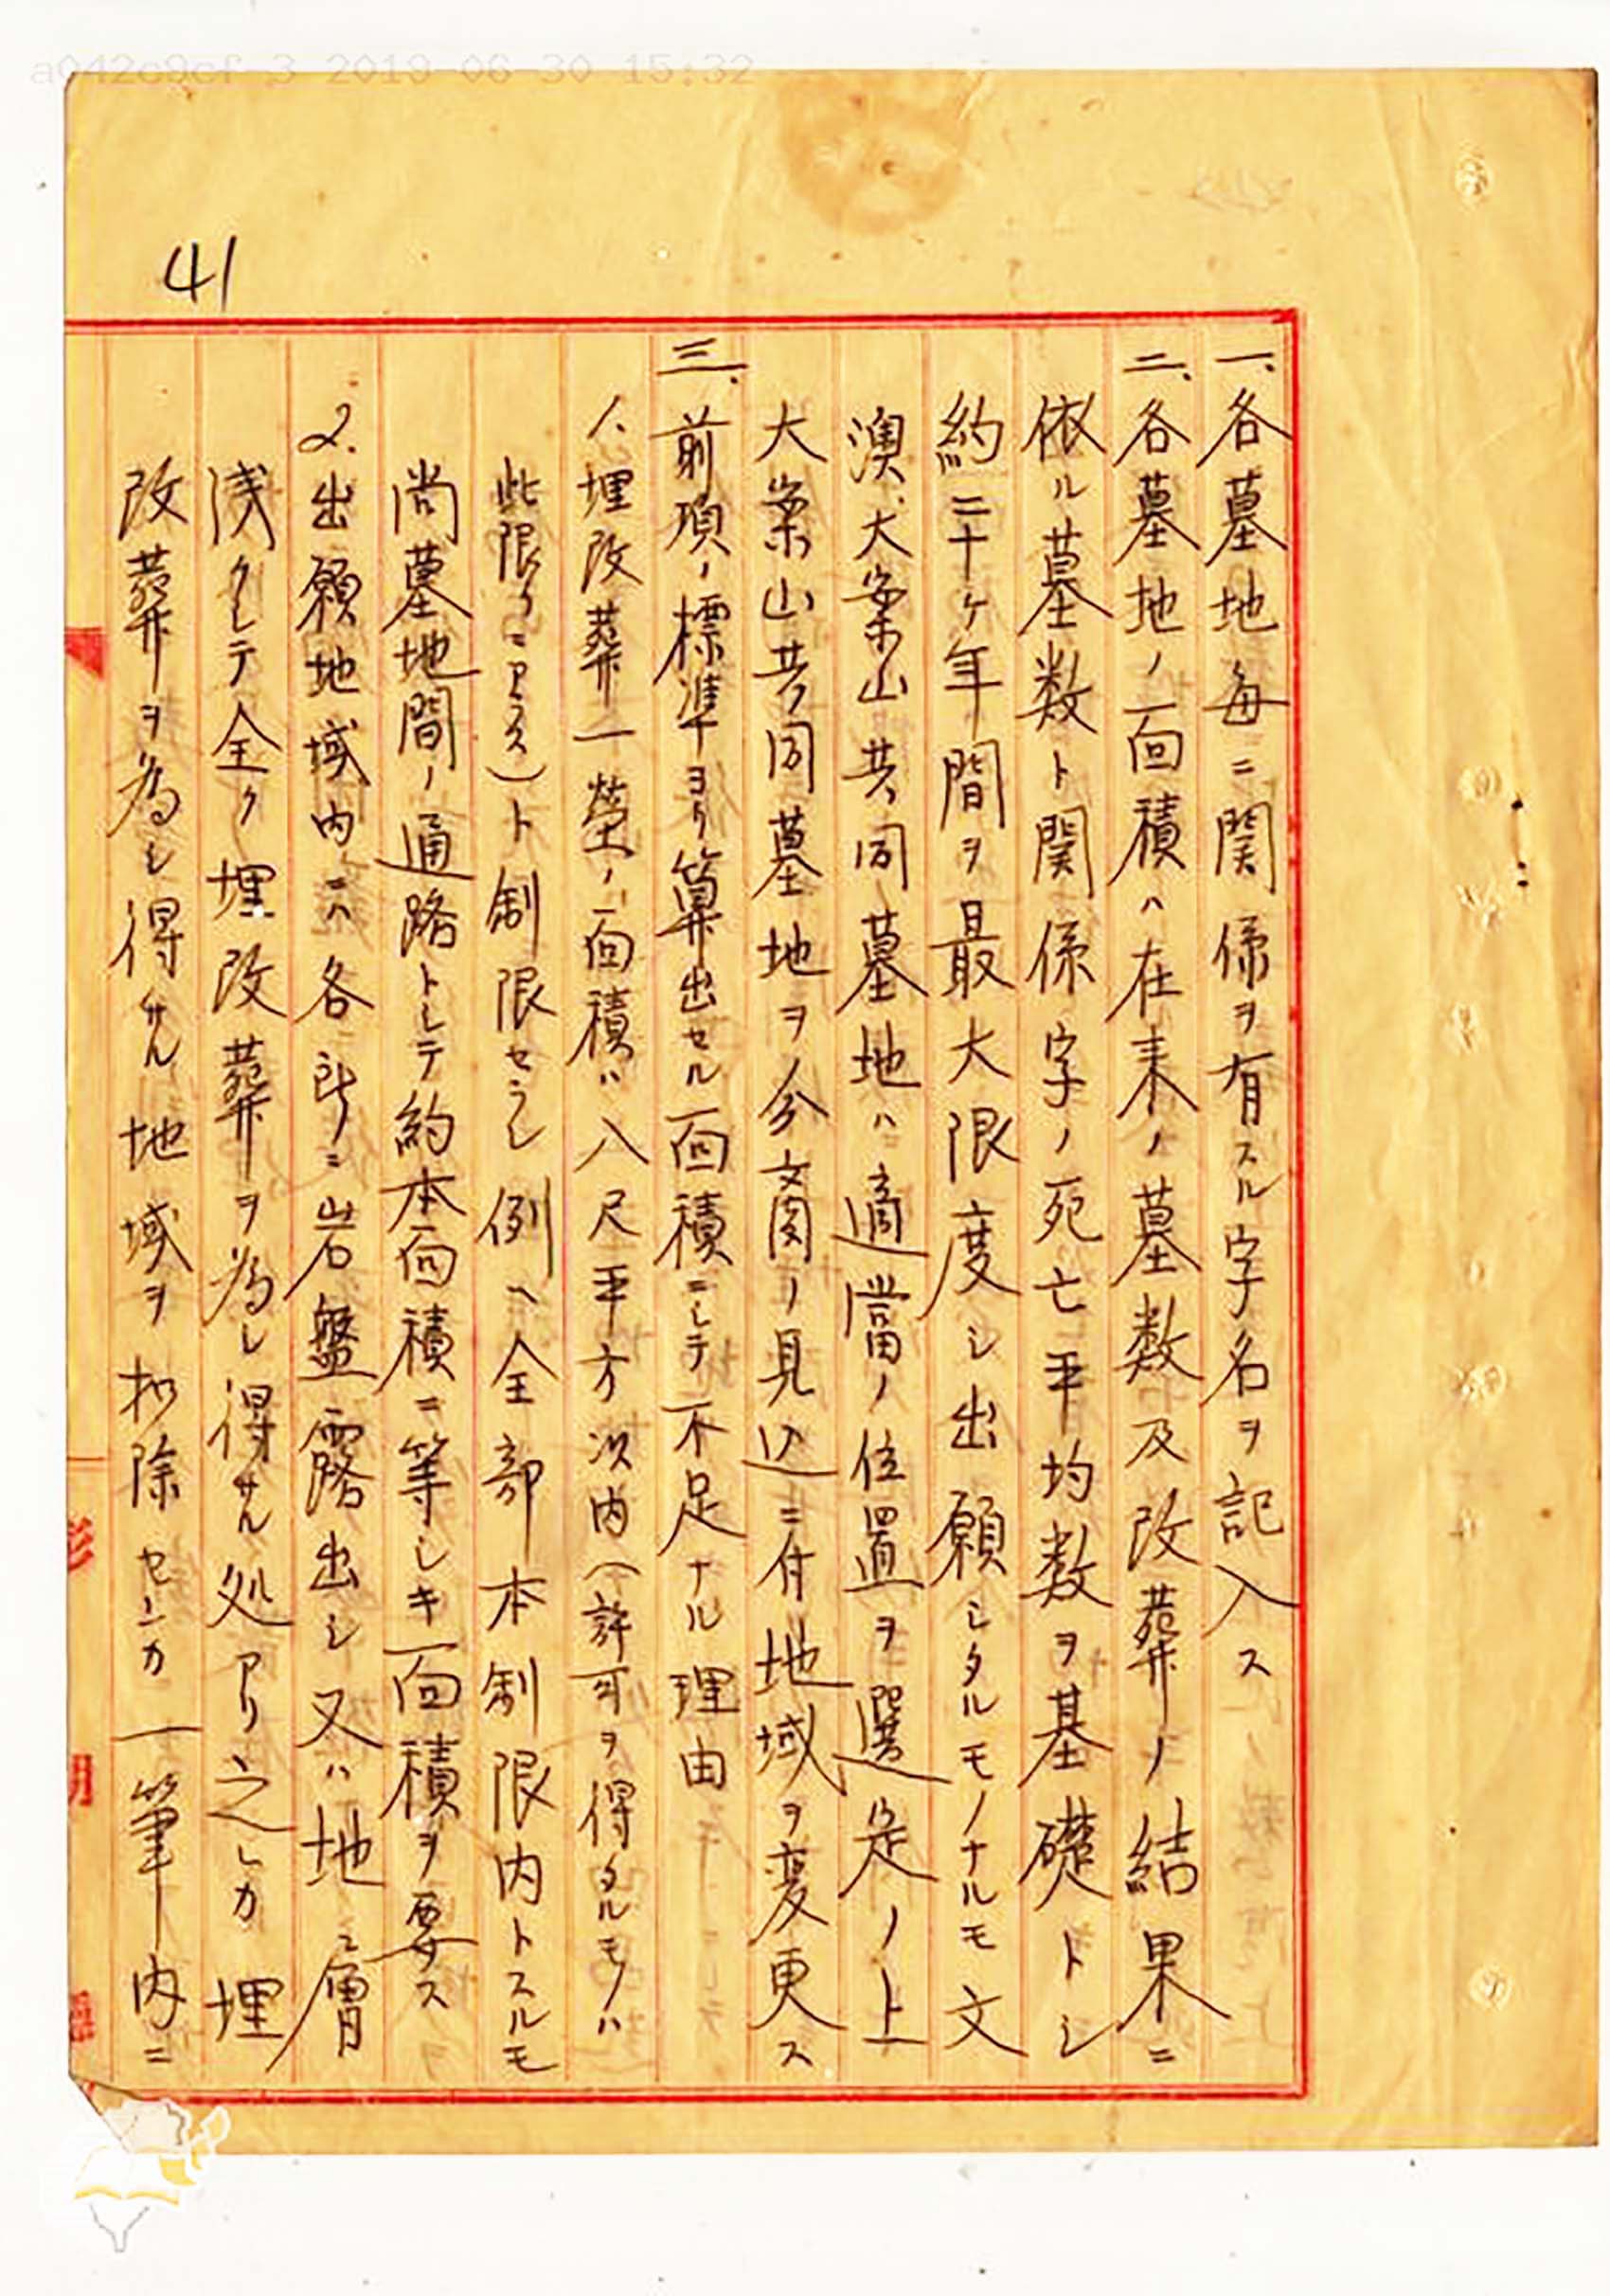 a042c9cf-3 2019-06-30 15:32
41
一、各墓地每ニ関係ヲ有スル字名ヲ記入ス
二、各墓地ノ面積ハ在来ノ墓数及改葬ノ結果ニ
依ル墓数ト関係字ノ死亡平均数ヲ基礎トシ
約二十ヶ年間ヲ最大限度シ出願シタルモノナルモ文
澳、大案山共同墓地ハ適當ノ位置ヲ選定ノ上
大案山共同墓地ヲノ分 ノ見込ニ付地域ヲ変更ス
三、前項ノ標準ヨリ算出セル面積ニシテ不足ナル理由
1、埋改葬一塋ノ面積ハ八尺平方次内(許可ヲ得タルモノハ
此限リニアラス)ト制限セラレ例ヘ全部本制限内トスルモ
尚墓地間ノ通路トシテ約本面積ニ等シキ面積ヲ要ス
2.出願地域内ニハ各所ニ岩盤露出シ又ハ地層
浅クシテ全ク埋改葬ヲ為シ得サル処アリ之レカ埋
改葬ヲ為シ得サル地域ヲ扣除センカ一筆内ニ